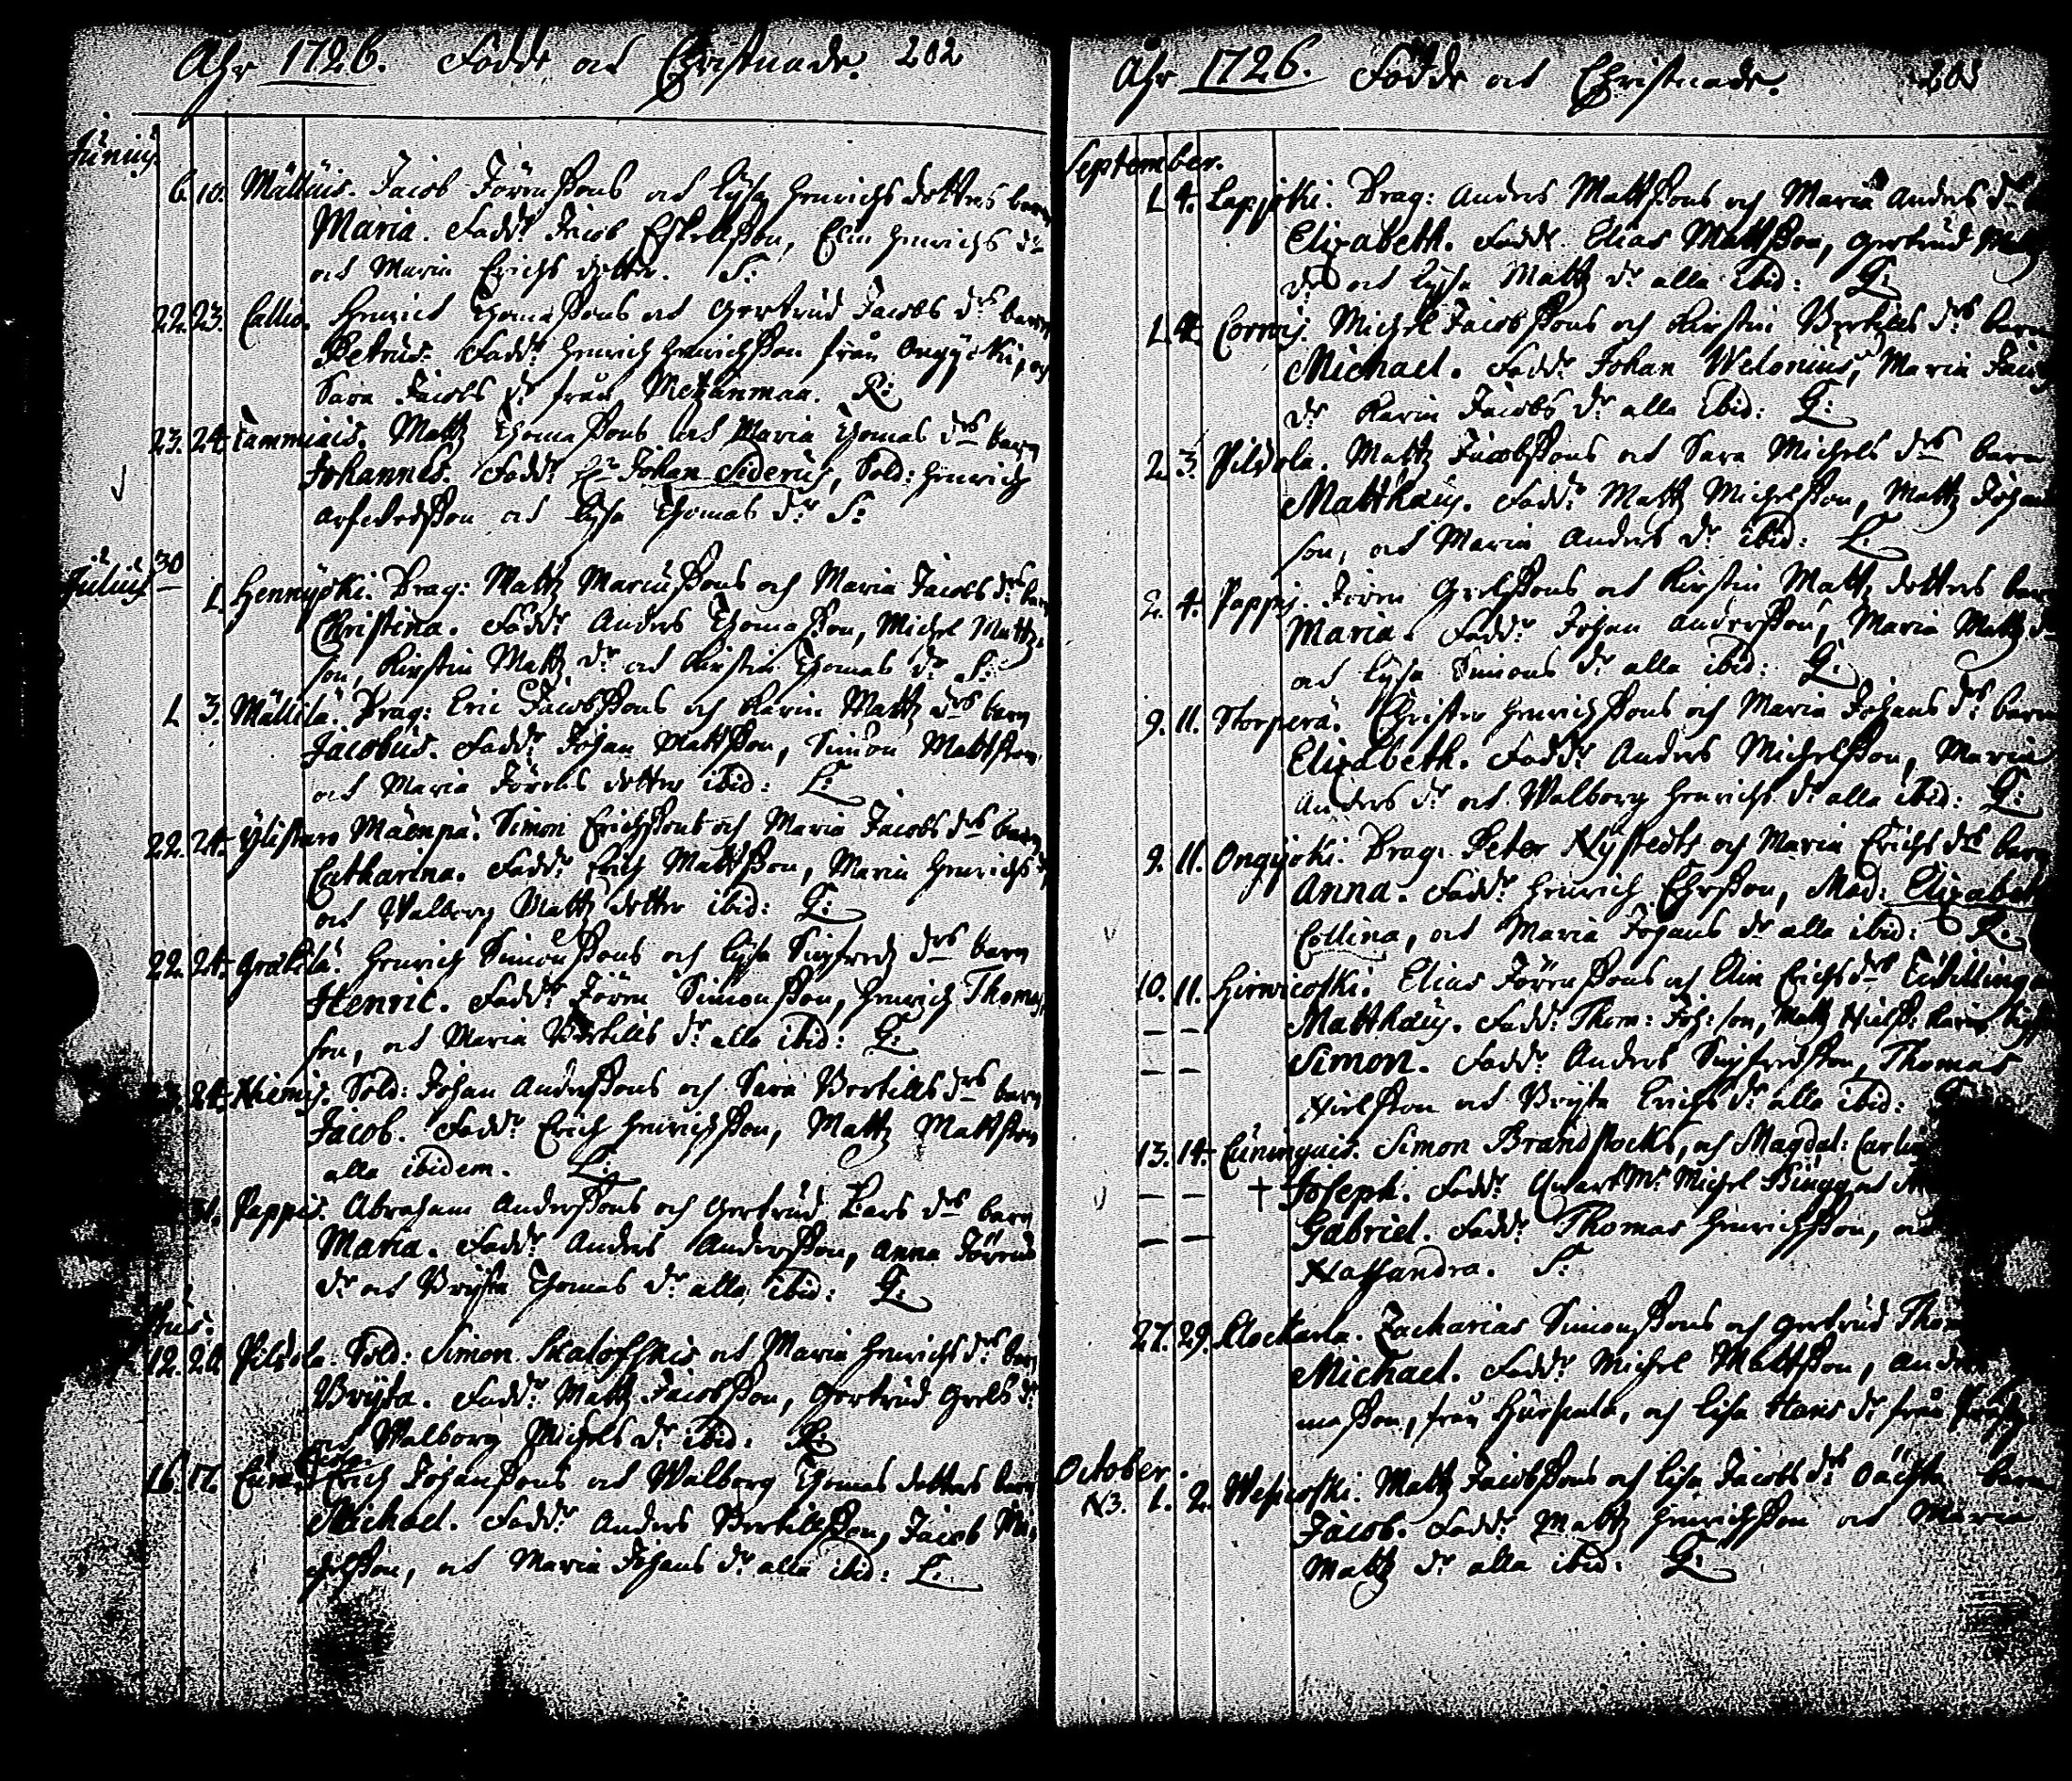 Åhr 1726. Födde och Christnade. 202
Junij.
6. 10. Mälkuis. Jacob Jörensons och Lysa Henrichs dotters barn
Maria. Fadd.r Jacob Eskellsson, Elin Henrichs d.r
och Maria Erichs dotter. S:
22. 23. Callio. Henrich Thomassons och Gertrud Jacobs d.rs barn
Petrus. Fadd.r Henrich Henrichsson från Ongijoki, och
Sara Jacobs d.r från Metzänmaa. R:
23. 24. Tammiais. Mattz Thomassons och Maria Thomas d.rs barn
Johannes. Fadd.r H.r Johan Siderus, Sold: Henrich
Arfwedsson och Lysa Thomas d.r S:
Julius 30
1. Hennijoki. Drag: Mattz Marcussons och Maria Jacobs d.rs barn
Christina. Fadd.r Anders Thomasson, Michel Mattz-
son, Kirstin Mattz d.r och Kirstin Thomas d.r S:
1. 3. Mällilä. Drag: Eric Jacobssons och Karin Mattz d.rs barn
Jacobus. Fadd.r Johan Mattsson, Simon Mattsson
och Maria Jörens dotter ibid: L:
22. 24. Ylistaro Mäenpä. Simon Erichssons och Maria Jacobs d.rs barn
Catharina. Fadd.r Erich Mattsson, Maria Henrichs d.r
och Walborg Mattz dotter ibid: G:
22. 24. Henrich Simonssons och Lysa Sigfredz d.rs barn
Henric. Fadd.r Jören Simonsson, Henrich Thomas-
son, och Maria Bertills d.r alla ibid: G:
24. Niemis. Sold: Johan Anderssons och Sara Bertills d.rs barn
Jacob. Fadd.r Erich Henrichsson, Mattz Mattsson
alla ibidem. L:
31. Pappis. Abraham Anderssons och Gertrud Lars d.rs barn
Maria. Fadd.r Anders Andersson, Anna Jörens
d.r och Bryta Thomas d.r alla ibid: G:
12. 20. Pilvola. Sold: Simon och Maria Henrichs d.rs barn
Bryta. Fadd.r Mattz Jacobsson, Gertrud Grels d.r
och Walborg Michels d.r ibid: R:
16. 17. Erich Johanssons och Walborg Thomas dotters barn
Michael. Fadd.r Anders Bertillsson, Jacob Mi-
chelsson, och Maria Johans d.r alla ibid: L:
Åhr 1726. Födde och Christnade. 203
September.
1. 4. Lapijoki. Drag: Anders Mattssons och Maria Anders d.rs
Elizabeth. Fadd.r Elias Mattsson, Gertrud Mattz
d.r och Lysa Mattz d.r alla ibid: G:
1. 4. Corvois. Michel Jacobssons och Kirstin Bertills d.rs barn
Michael. Fadd.r Johan Welonius, Maria Jacobs
d.r Karin Jacobs d.r alla ibid: G:
2. 3. Pilvola. Mattz Jacobssons och Sara Michels d.rs barn
Matthäus. Fadd.r Mattz Michelsson, Mattz Johans-
son, och Maria Anders d.r ibid: L:
2. 4. Pappis. Jören Grelssons och Kirstin Mattz dotters barn
Maria. Fadd.r Johan Andersson, Maria Mattz d.r
och Lysa Simons d.r alla ibid: G:
9. 11. Storperä. Christer Henrichssons och Maria Johans d.rs barn
Elizabeth. Fadd.r Anders Michelsson, Maria
Anders d.r och Walborg Henrichs d.r alla ibid: G:
9. 11. Ongijoki. Drag: Peter Nystedts och Maria Erichs d.rs barn
Anna. Fadd.r Henrich Ehrsson, Mad: Elizabeth
Collina, och Maria Johans d.r alla ibid: R:
10. 11. Hirwikoski. Elias Jörenssons och Elin Erichs d.rs Tvillingar
— — Matthäus. Fadd.r Thom: Joh:son, Mattz Nilss: Karin
— — Simon. Fadd.r Anders Sigfredsson, Thomas
Nielsson och Bryta Erichs d.r alla ibid:
13. 14. Cuninguis. Simon Brandstocks, och Magdal:
— — + Joseph. Fadd.r Quart M.r Michel
— — Gabriel. Fadd.r Thomas Henrichsson,
Nassandra. S:
27. 29. Klockarla. Zacharias Simonssons och Gertrud
Michael. Fadd.r Michel Mattsson,
masson, från Hurpala, och Lisa Hans d.r från
October.
N3. 1. 2. Wesicoski. Mattz Jacobssons och Lisa Jacobs d.rs oächta barn
Jacob. Fadd.r Mattz Henrichsson och Maria
Mattz d.r alla ibid: G: